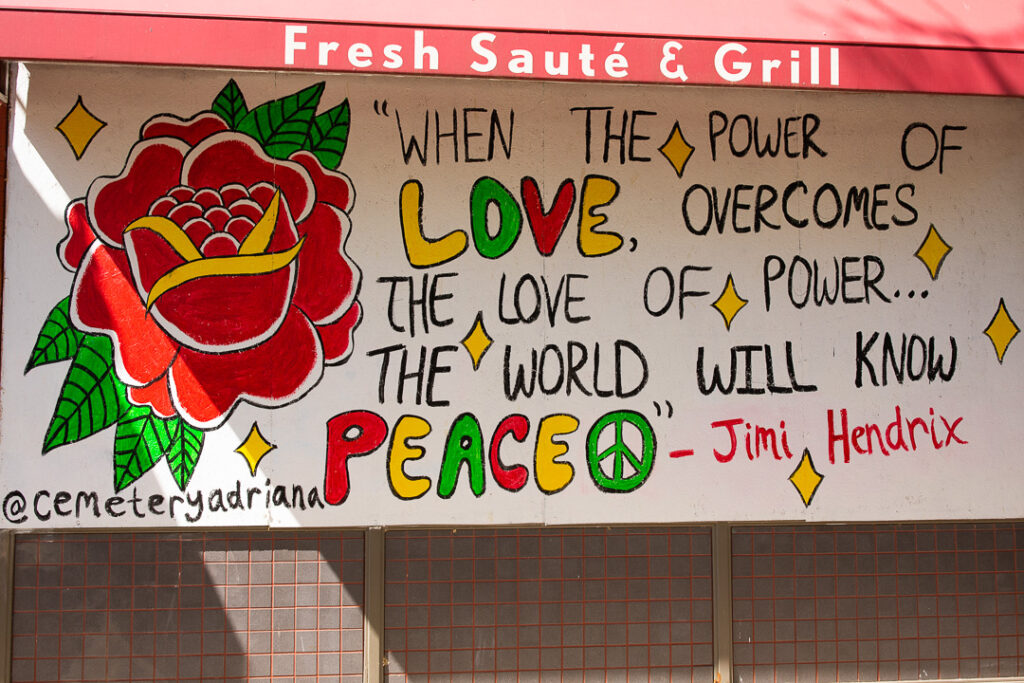 Fresh Sauté & Grill
"WHEN THE POWER OF
LOVE, OVERCOMES
THE LOVE OF POWER...
THE WORLD WILL KNOW
PEACE" - Jimi Hendrix
@cemeteryadriana